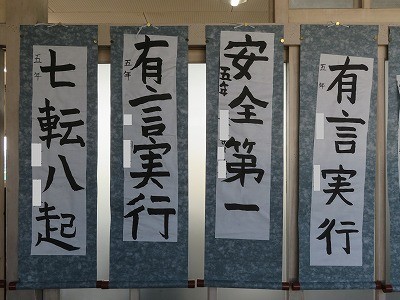 安全第一
五年
有言実行
五年
有言実行
五年
七転八起
五年